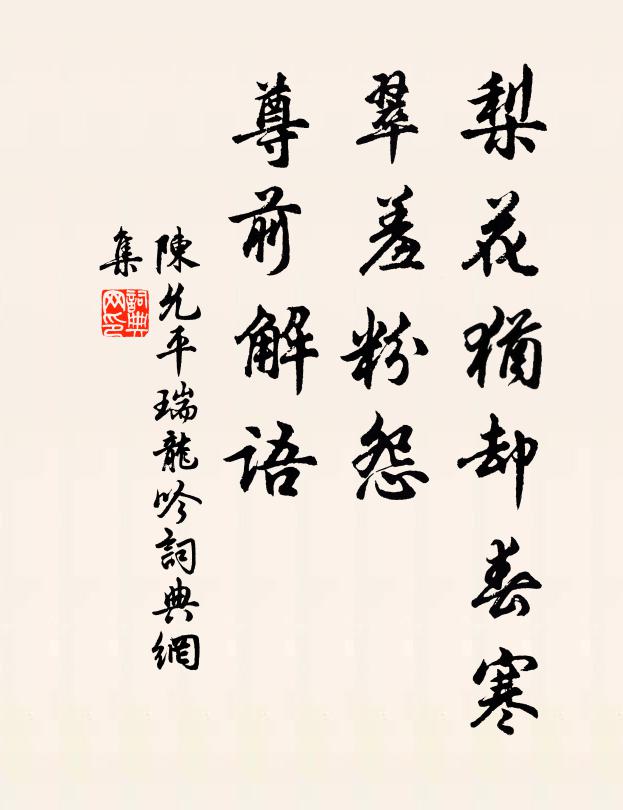 梨花猶却春寒
翠羞粉怨
尊前解语
陳允平瑞龍吟詞典網
集
詞典
网印